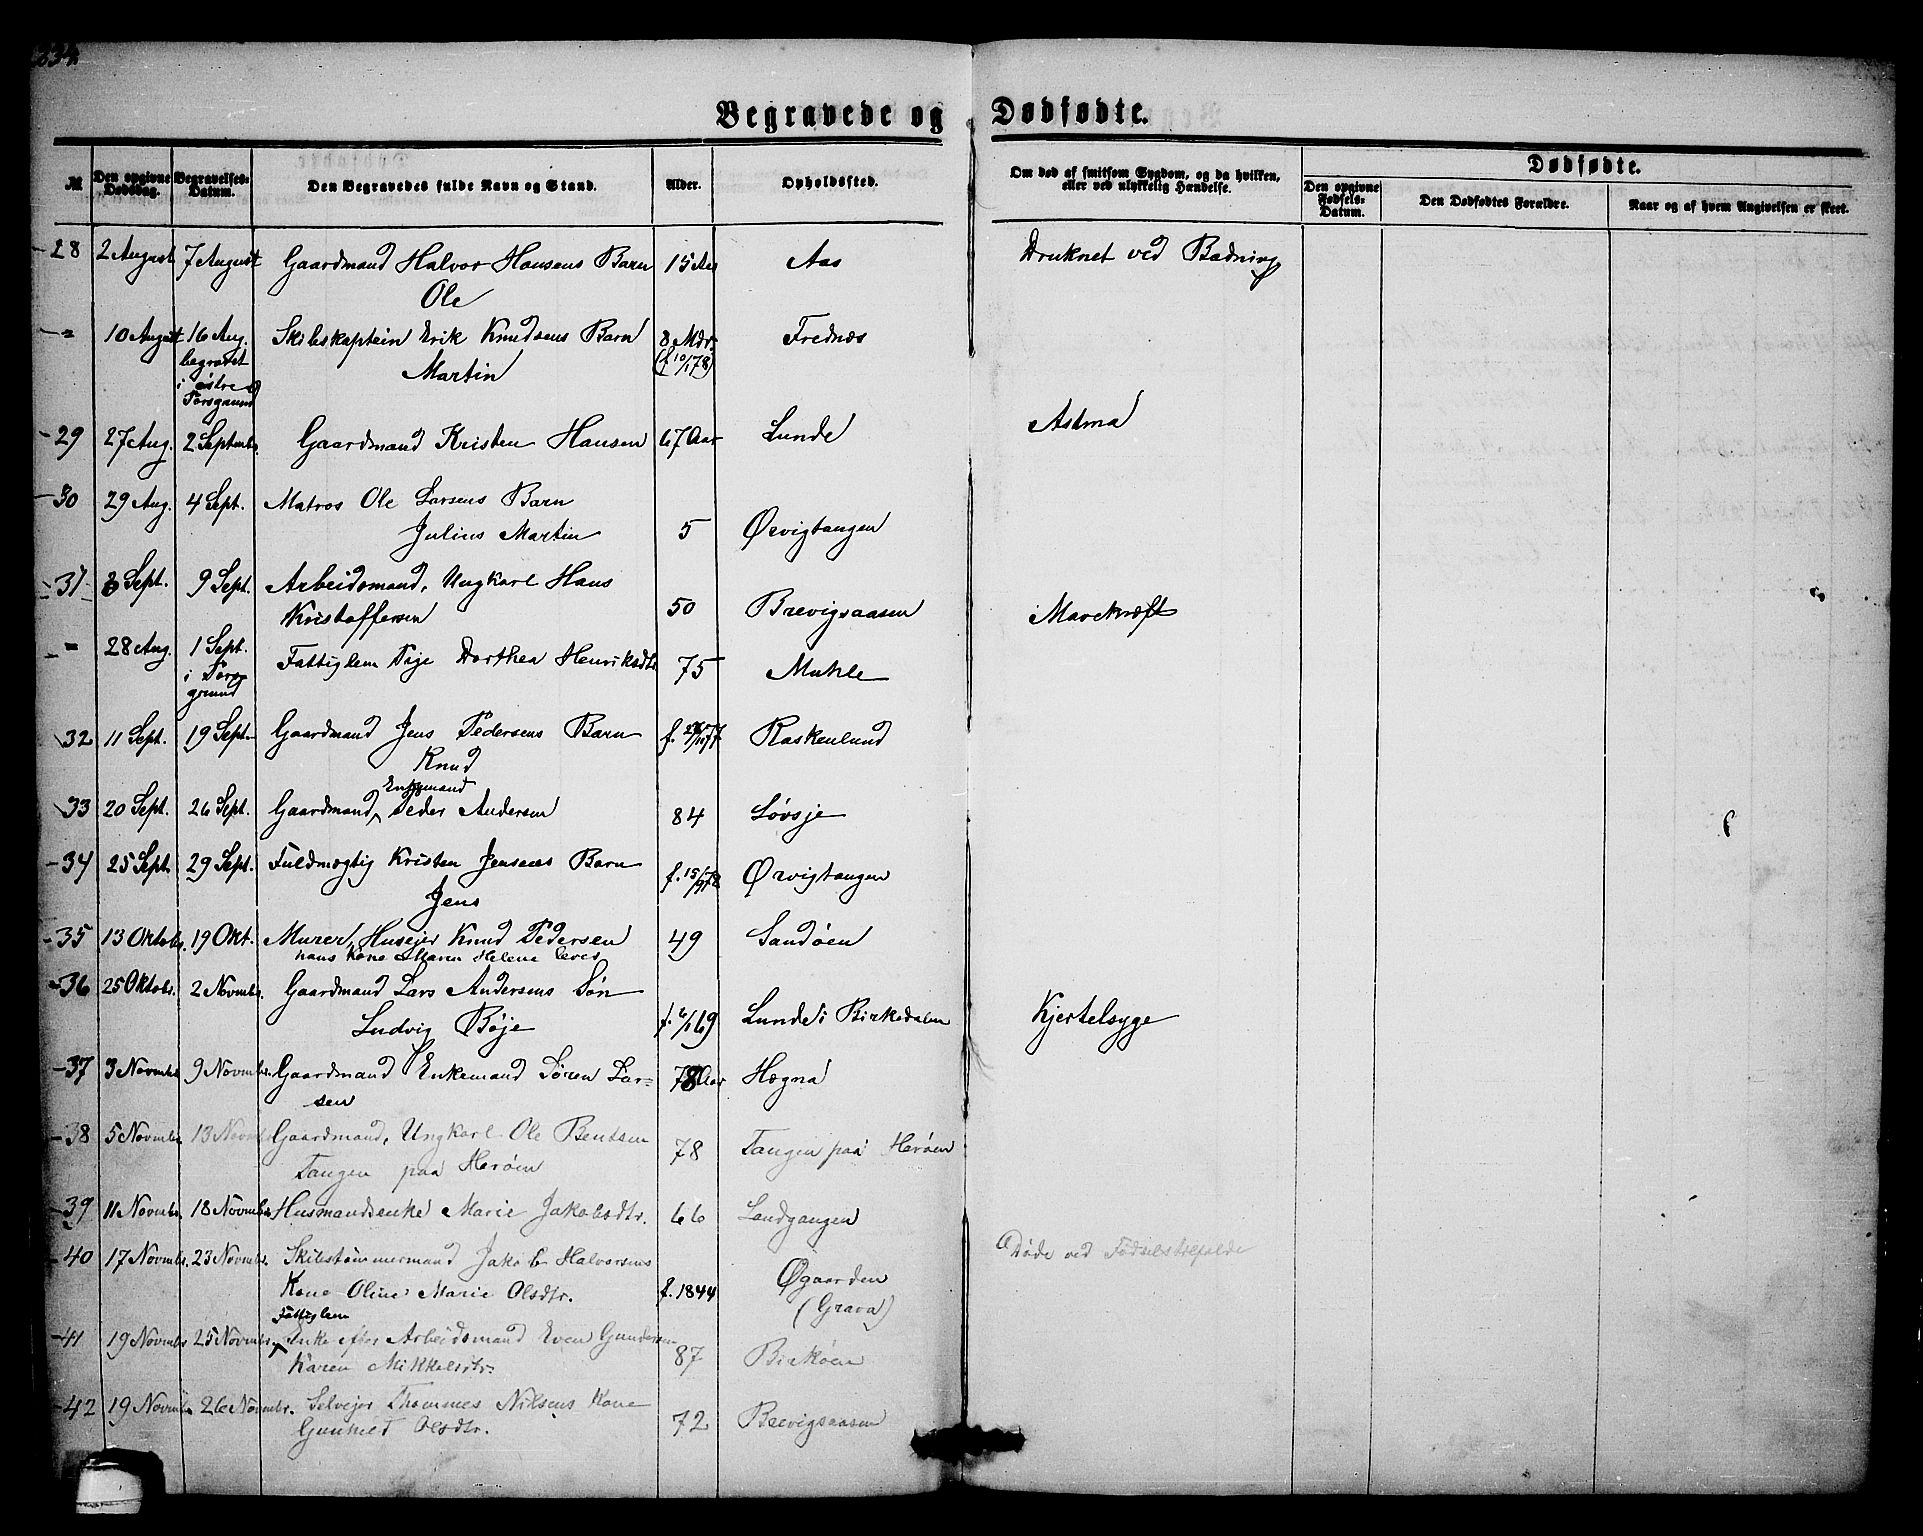 334
Begravede og Dødfødte.
№ Den opgivne Dødsdag. Begravelses-Datum. Den Begravedes fulde Navn og Stand. Alder. Opholdssted. Om død af smitsom Sygdom, og da hvilken, eller ved ulykkelig Hændelse. Dødfødte.
Den opgivne Fødsels-Datum. Den Dødfødtes Forældre. Naar og af hvem Angivelsen er skeet.
28 2 August 7 August Gaardmand Halvor Hansens Barn 15 Aar Aas Druknet ved Badning
Ole
= 10 August 16 Aug. Skibskaptein Erik Knudsens Barn 8 Mdr. Frednæs
begravet Martin (f. 10/1 78)
i østre
Porsgrund
29 27 Aug. 2 Septembr. Gaardmand Kristen Hansen 67 Aar Lunde Astma
30 29 Aug. 4 Sept. Matros Ole Larsens Barn
Julius Martin 5 Ørvigtangen
31 3 Sept. 9 Sept. Arbeidsmand, Ungkarl Hans
Kristoffersen 50 Brevigsaasen Mavekræft
= 28 Aug. 1 Sept. Fattiglem Pige Dorthea Henriksdtr. 75 Muhle
i Pors-
grund
32 11 Sept. 19 Sept. Gaardmand Jens Pedersens Barn f. 77 Raskenlund
Knud
Enkemand
33 20 Sept. 26 Sept. Gaardmand, Peder Andersen 84 Løvsje
34 25 Sept. 29 Sept. Fuldmægtig Kristen Jensens Barn f. 15/9 78 Ørvigtangen
Jens
35 13 Oktobr. 19 Okt. Murer, Husejer Knud Pedersen 49 Sandøen
hans Kone Maren Helene lever
36 25 Oktobr. 2 Novmbr. Gaardmand Lars Andersens Søn
Ludvig Bøje f. 6/1 69 Lunde i Birkedalen Kjertelsyge
37 3 Novmbr. 9 Novmbr. Gaardmand Enkemand Søren Lar- 78 Aar Hægna
sen
38 5 Novmbr. 13 Novmb Gaardmand, Ungkarl Ole Bentsen 78 Tangen paa Herøen
Tangen paa Herøen
39 11 Novmbr. 18 Novmbr. Husmandsenke Marie Jakobsdtr. 66 Landgangen
40 17 Novmbr. 23 Novmbr. Skibstømmermand Jakob Halvorsens Øgaarden Døde ved Fødselstilfælde
Kone Oline Marie Olsdtr. f. 1844 (Grava)
Fattiglem
41 19 Novmbr. 25 Novmbr. Enke efter Arbeidsmand Even Gundersen 87 Birkøen
Karen Mikkelsdtr.
42 19 Novmbr. 26 Novmbr. Selvejer Thommes Nilsens Kone 72 Brevigsaasen
Gunhild Olsdtr.